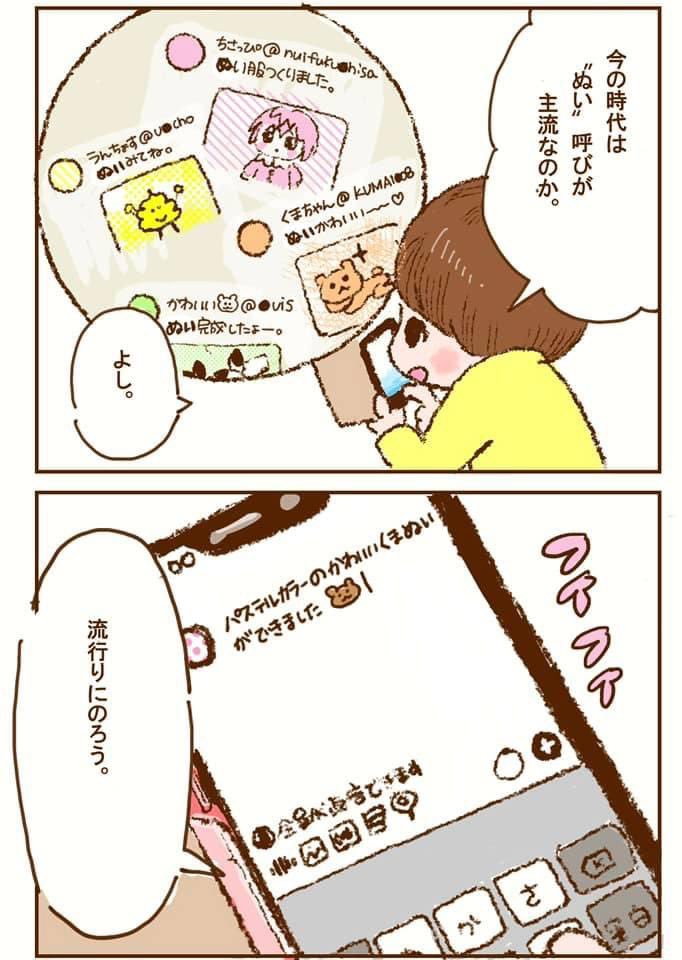 今の時代は
“ぬい”呼びが
主流なのか。
ちさっぴ@nuifuku●hisa
ぬい服つくりました。
うんちょす@u●cho
ぬいみてね。
くまちゃん@KUMAI●8
ぬいかわいい〜〜♡
かわいい@●uis
ぬい完成したよー。
よし。
パステルカラーのかわいいくまぬい
ができました
フイフイ
流行りにのろう。
全員が返信できます
あ
か
さ
空白